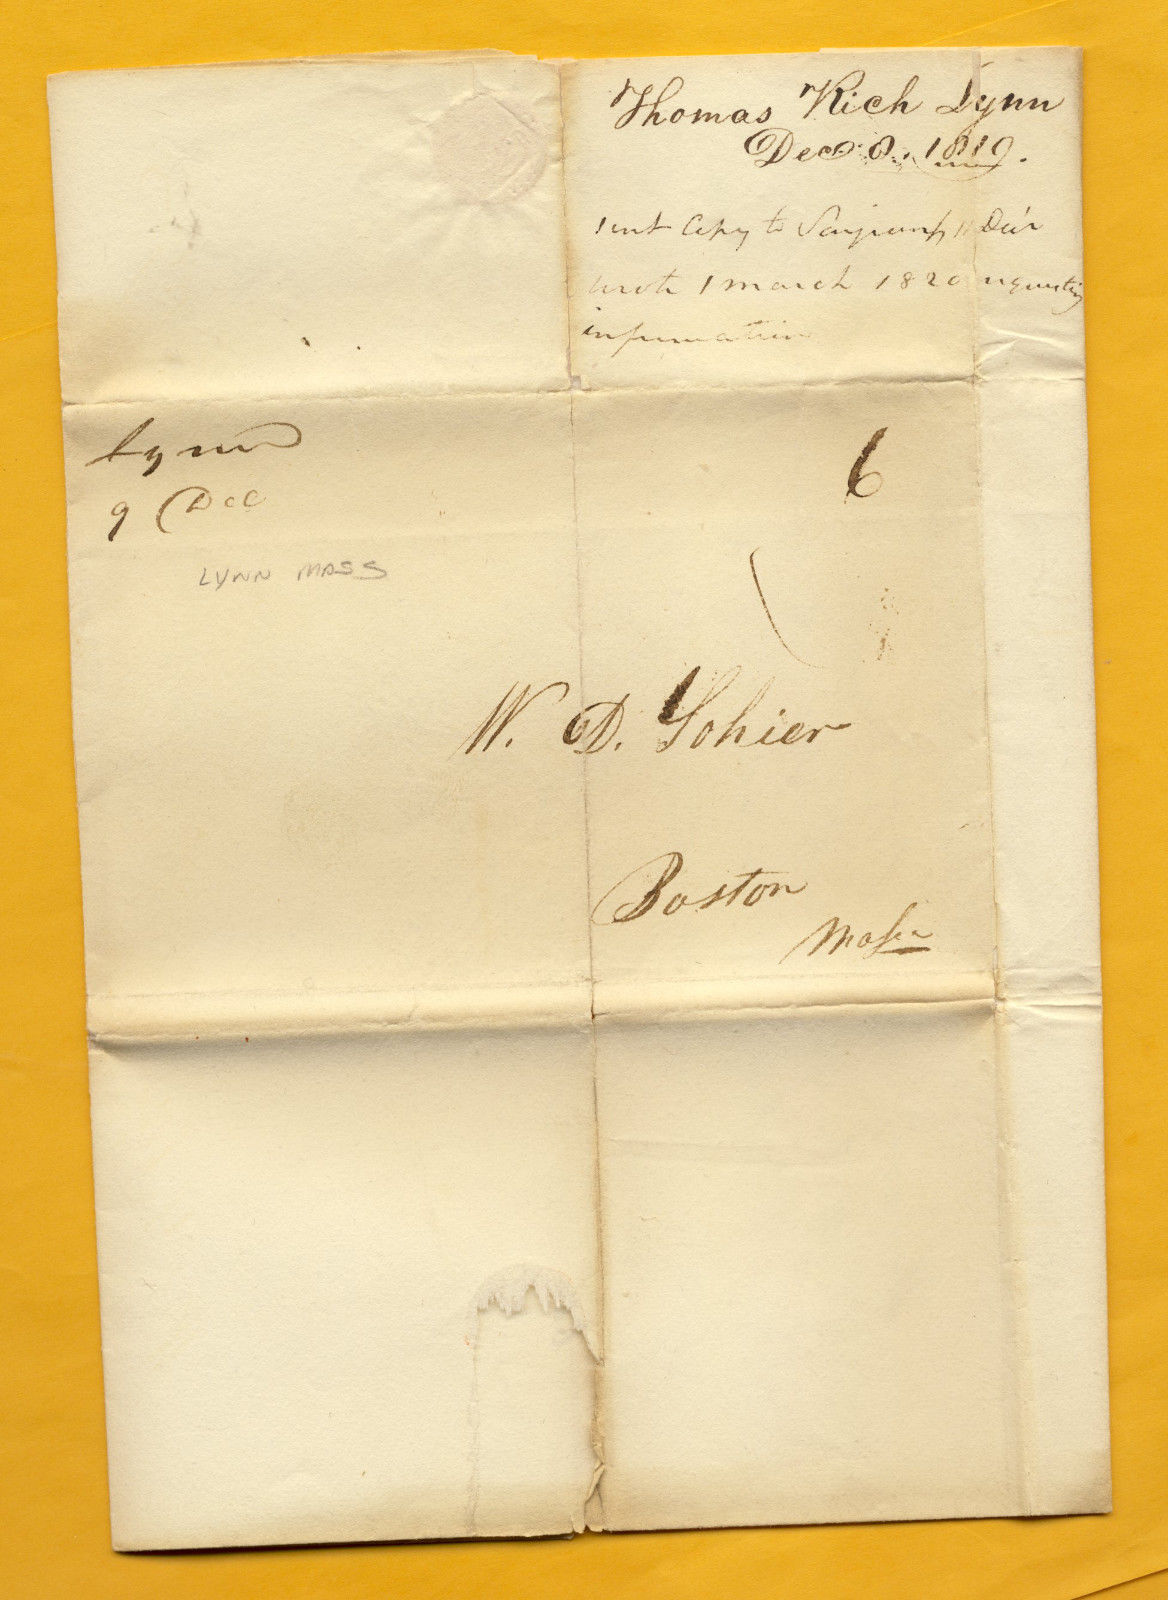 Thomas Rich Lynn
Dec. 8. 1819.
sent Copy to 11 Decr
wrote 1 march 1820 requesting
information
Lynn
9 Dec
6
LYNN MASS
W. D. Sohier
Boston
Mass